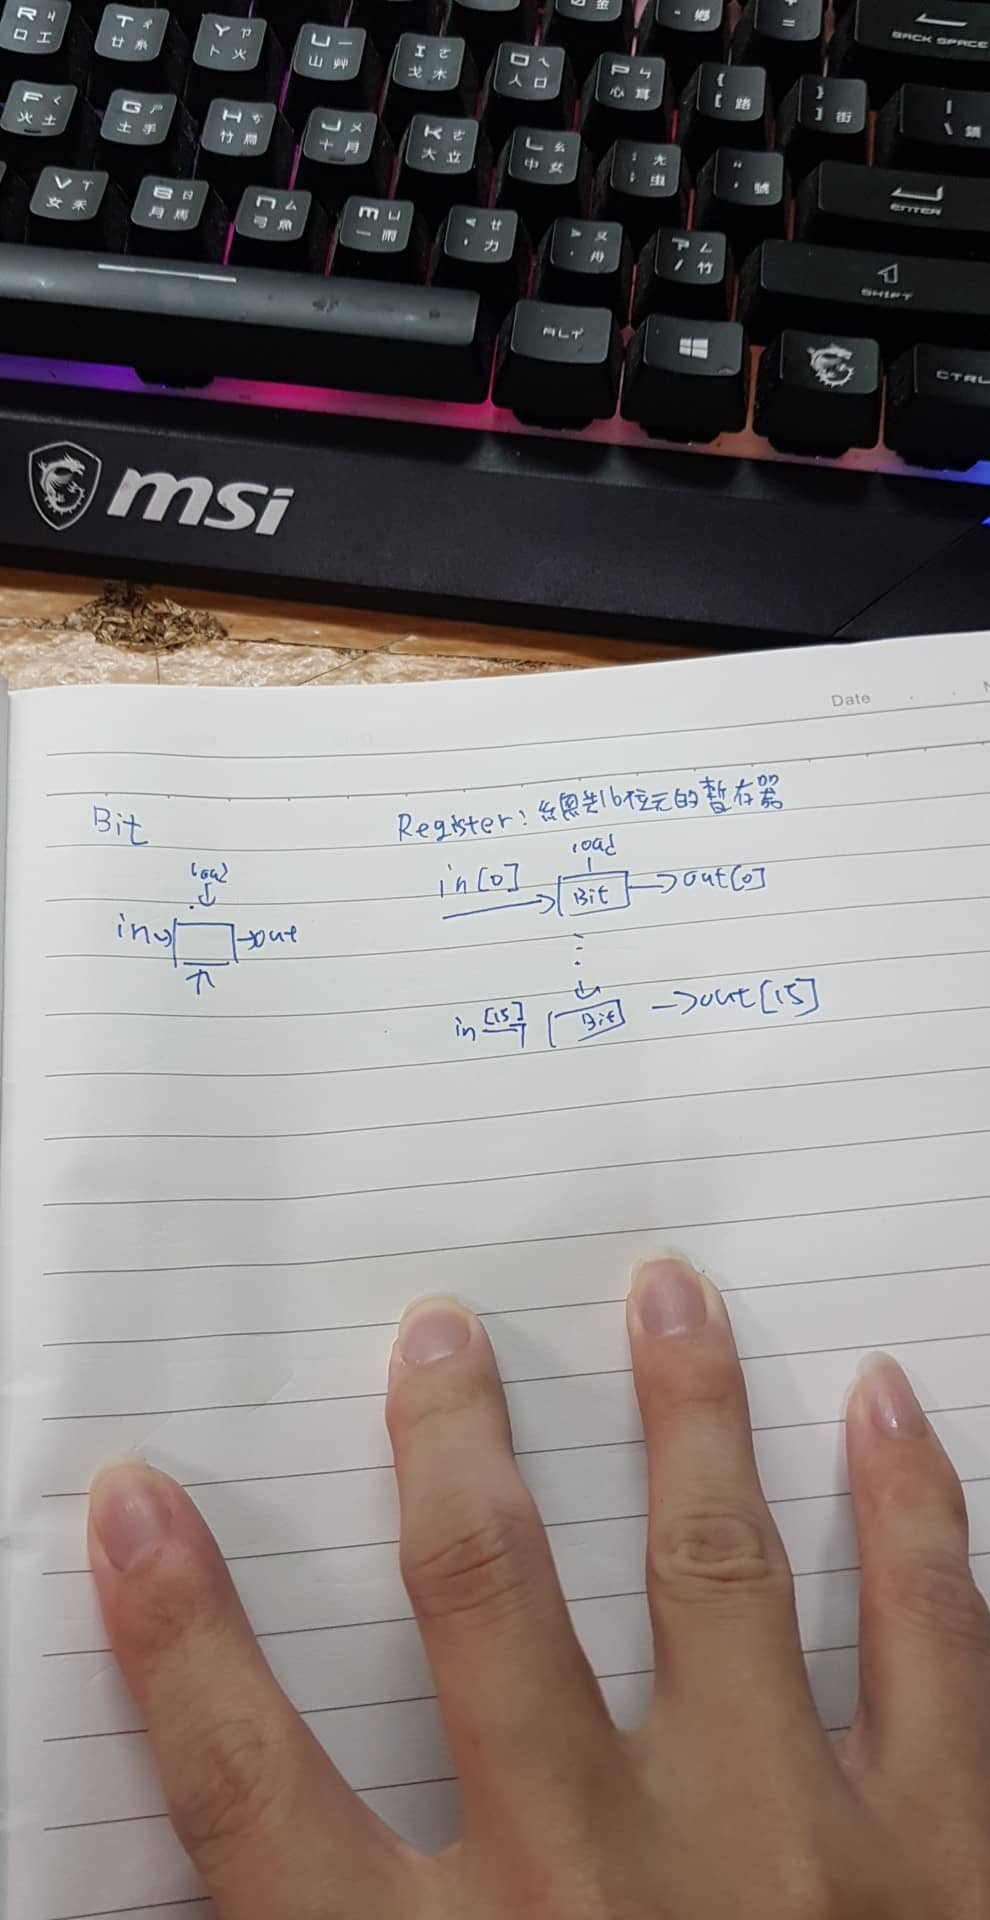 R ㄐ
口 工
T ㄔ
廿 糸
Y ㄗ
卜 火
U ㄧ
山 艸
I ㄛ
戈 木
O ㄟ
人 口
P ㄣ
心 耳
{
[ 路
}
] 街
|
\ 鎖
金
- 鄉
+
=
BACK SPACE
F ㄑ
火 土
G ㄕ
土 手
H ㄘ
竹 鳥
J ㄨ
十 月
K ㄜ
大 立
L ㄠ
中 女
: ㄤ
; 虫
"
' 號
ENTER
V ㄒ
女 禾
B ㄖ
月 馬
N ㄙ
弓 魚
M ㄩ
一 雨
< ㄝ
, 力
> ㄡ
. 舟
? ㄥ
/ 竹
SHIFT
ALT
CTRL
msi
Date
Bit
Register: 總共16位元的暫存器
load
in
out
load
in[0]
Bit
out[0]
in [15]
Bit
out[15]